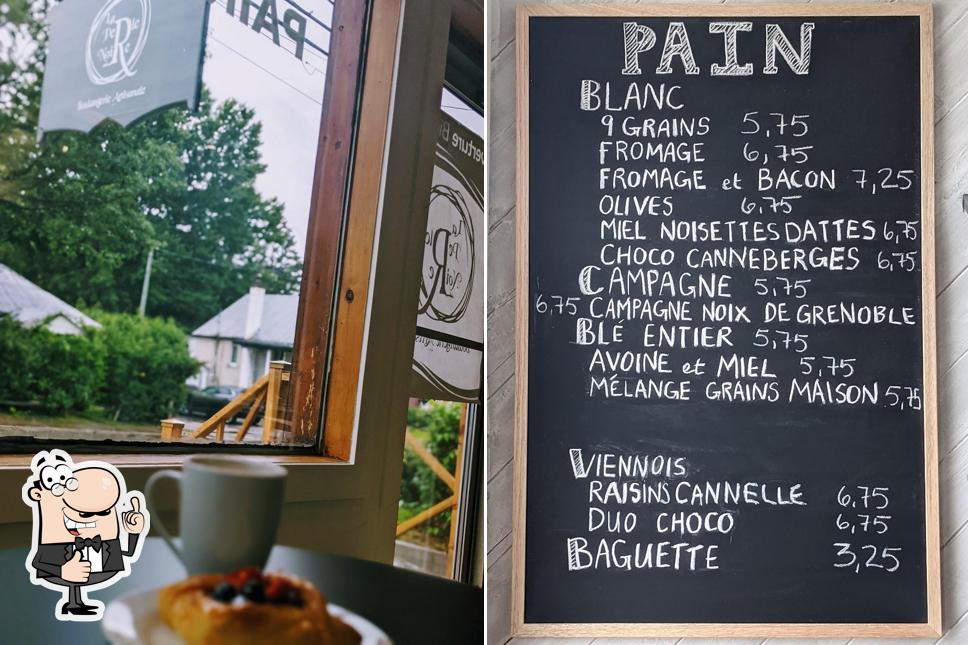 La
Perle
Noire
Boulangerie Artisanale
PAIN
BLANC
9 GRAINS 5,75
FROMAGE 6,75
FROMAGE et BACON 7,25
OLIVES 6,75
MIEL NOISETTES DATTES 6,75
CHOCO CANNEBERGES 6,75
CAMPAGNE 5,75
6,75 CAMPAGNE NOIX DE GRENOBLE
BLÉ ENTIER 5,75
AVOINE et MIEL 5,75
MÉLANGE GRAINS MAISON 5,75
VIENNOIS
RAISINS CANNELLE 6,75
DUO CHOCO 6,75
BAGUETTE 3,25